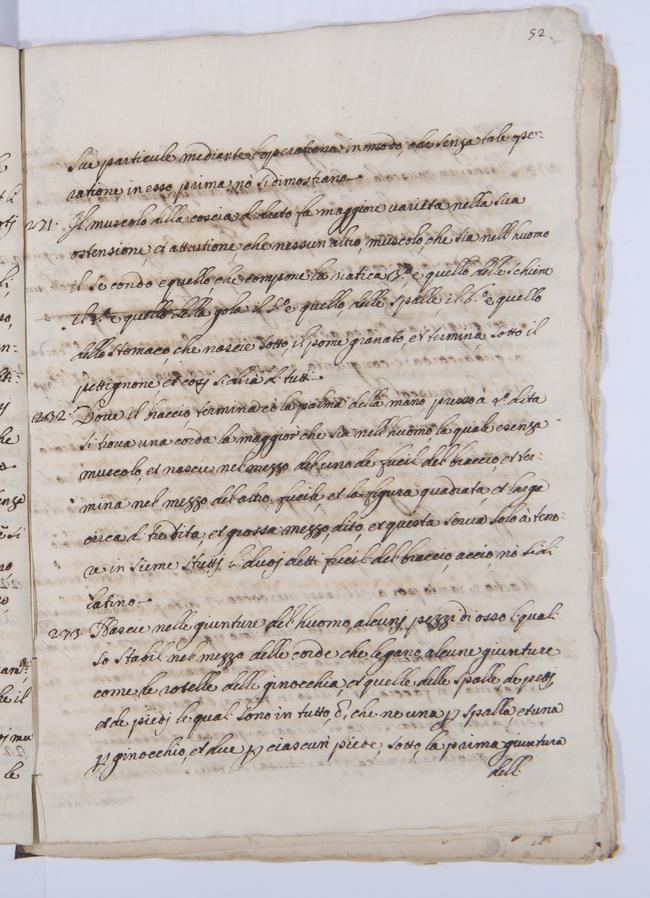 52
sue particule mediante l'operatione in modo, che senza tale ope-
ratione in esso, prima nō si dimostrano.
271. Il muscolo della coscia d. dieto fa maggiore varietà nella sua
ostensione, et attratione, che nessun altro, muscolo, che sia nell'huomo
il secondo e quello che compone la natica 3.º e quello delle schiene
il 4.º e quello della gola il 5.º e quello, delle spalle il 6.º e quello
dello stomaco che nascie sotto, il pome granato, et termina, sotto il
pettignone et cosj si dira d. tutti.
272. Dove il braccio termina cō la palma della mano presso à 4.º dita
si trova una corda la maggior che sia nell'huomo la quale e senza
muscolo et nascie nel mezzo del uno de fucil del braccio, et ter-
mina nel mezzo del altro fucile, et la figura quadrata, et larga
circa d. tre dita, et grossa mezzo, dito, et questa serve solo à tene-
re in sieme strettj li duoj detti fucil del braccio, accio, nō si di
latino.
273. Nascie nelle giunture del huomo, alcunj pezzi di osso li quali
so stabil nel mezzo delle corde che legano, alcune giunture
come, le rotelle delle ginocchia et quelle delle spalle de pettj
et de piedj le quali sono in tutto, 8, che ne una p spalla, et una
p ginocchio, et due p ciascun piede, sotto, la prima giuntura
dell